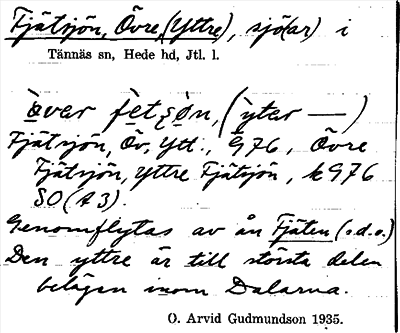 Fjätsjön, Övre, (Yttre), sjö(ar) i
Tännäs sn, Hede hd, Jtl. l.
ø̀vər fɛ̀t ʂøn, (ỳtər —)
Fjätsjön, Öv., Ytt., G76, Övre
Fjätsjön, Yttre Fjätsjön, kG76
SO (A3).
Genomflytas av ån Fjäten (s.d.o.)
Den yttre är till största delen
belägen inom Dalarna.
O. Arvid Gudmundson 1935.